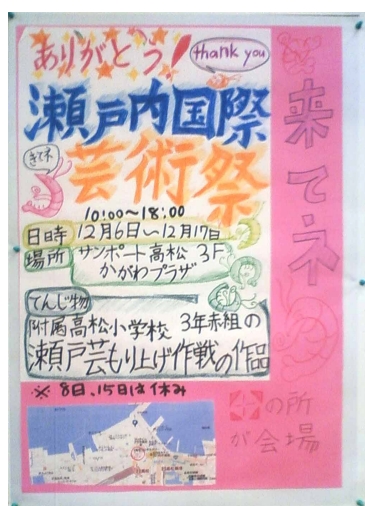 ありがとう!
thank you
瀬戸内国際
きてネ
芸術祭
10:00～18:00
日時 12月6日～12月17日
場所 サンポート高松 3F
かがわプラザ
てんじ物
附属高松小学校 3年赤組の
瀬戸芸もり上げ作戦の作品
※ 8日、15日は休み
来てネ
の所
が会場